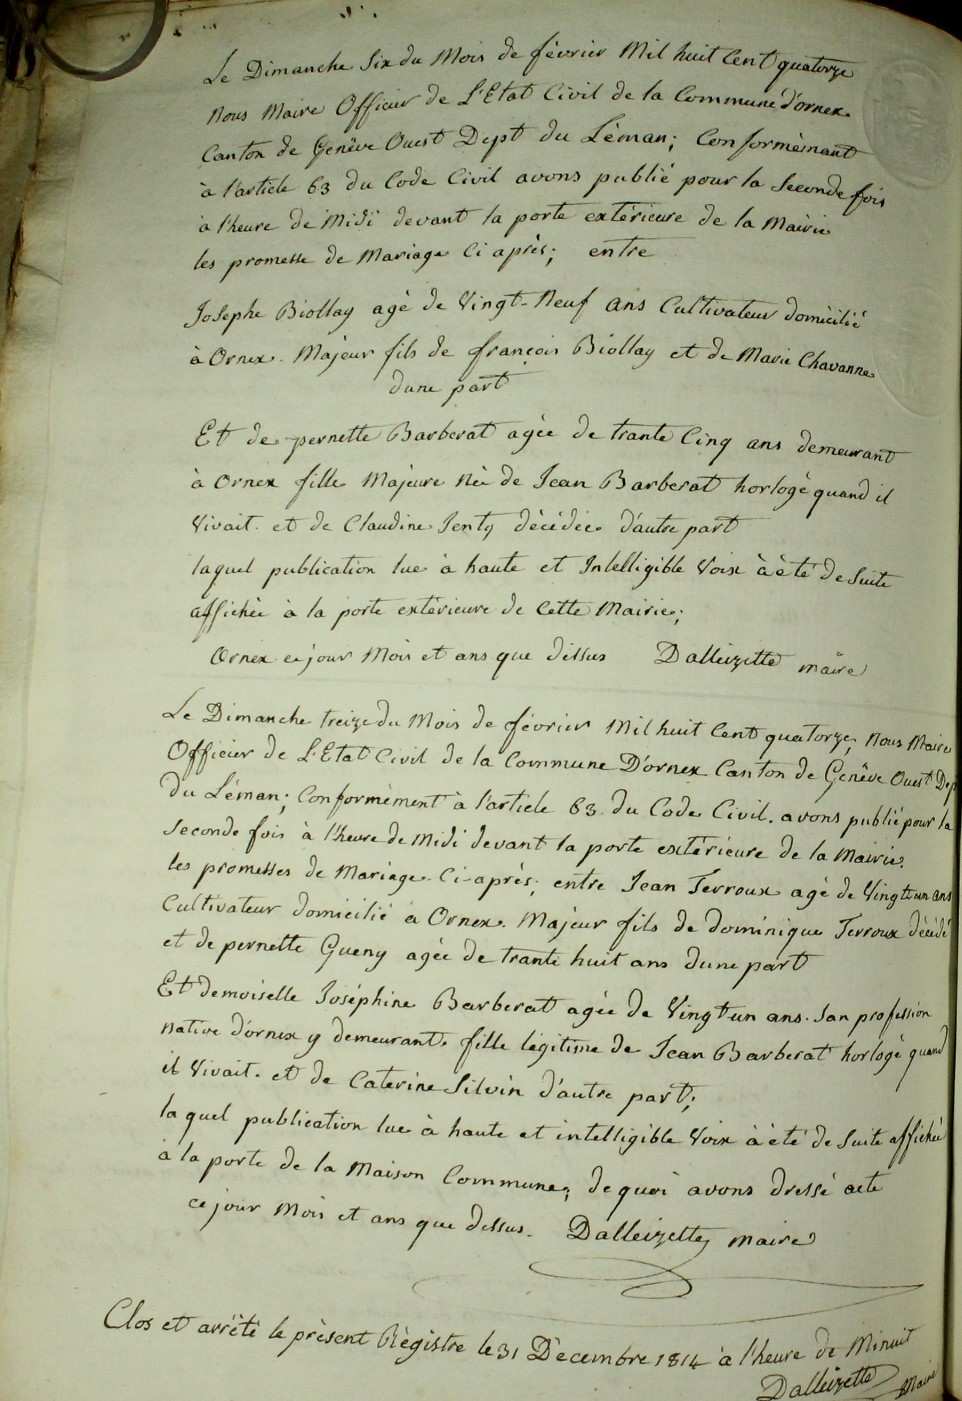 Le Dimanche Six du Mois de février Mil huit Cent quatorze
Nous Maire Officier de L'Etat Civil de la Commune d'ornex.
Canton de Genêve Ouest Dept du Léman; Conformèmant
à l'article 63 du Code Civil avons publié pour la Seconde fois
à l'heure de Midi devant la porte extérieure de la Mairie
les promesse de Mariage Ci après; entre
Josephe Biollay agé de Vingt-Neuf ans Cultivateur domicilié
à Ornex. Majeur fils de françois Biollay et de Marie Chavanne
dune part
Et de pernette Barberat agée de trante Cinq ans demeurant
à Ornex fille Majeure Née de Jean Barberat horlogé quand il
Vivait. et de Claudine Jenty décédée d'autre part
laquel publication lue à haute et Intelligible Voix à été de Suite
affichée à la porte extérieure de Cette Mairie;
Ornex ce jour Mois et ans que dessus Dalleizette maire
Le Dimanche treize du Mois de février Mil huit Cent quatorze, Nous Maire
Officier de L'Etat Civil de la Commune D'ornex Canton de Genêve Ouest Dept
du Léman; Conformèment à l'article 63 du Code Civil. avons publié pour la
Seconde fois à l'heure de Midi devant la porte extérieure de la Mairie.
les promesses de Mariage Ci-après; entre Jean Terroux agé de Vingt un ans
Cultivateur domicilié à Ornex. Majeur fils de dominique Terroux décédé
et de pernette Gueny agée de trante huit ans dune part
Et demoiselle Joséphine Barberat agée de Vingt un ans. San profession
Native d'ornex y demeurant. fille légitime de Jean Barberat horlogé quand
il Vivait. et de Caterine Silvin d'autre part;
laquel publication lue à haute et intelligible Voix à été de Suite affichée
à la porte de la Maison Commune; de quoi avons dressé acte
ce jour Mois et ans que dessus. Dalleizette maire
Clos et arrêté le présent Régistre le 31 Décembre 1814 à l'heure de Minuit
Dalleizette Maire